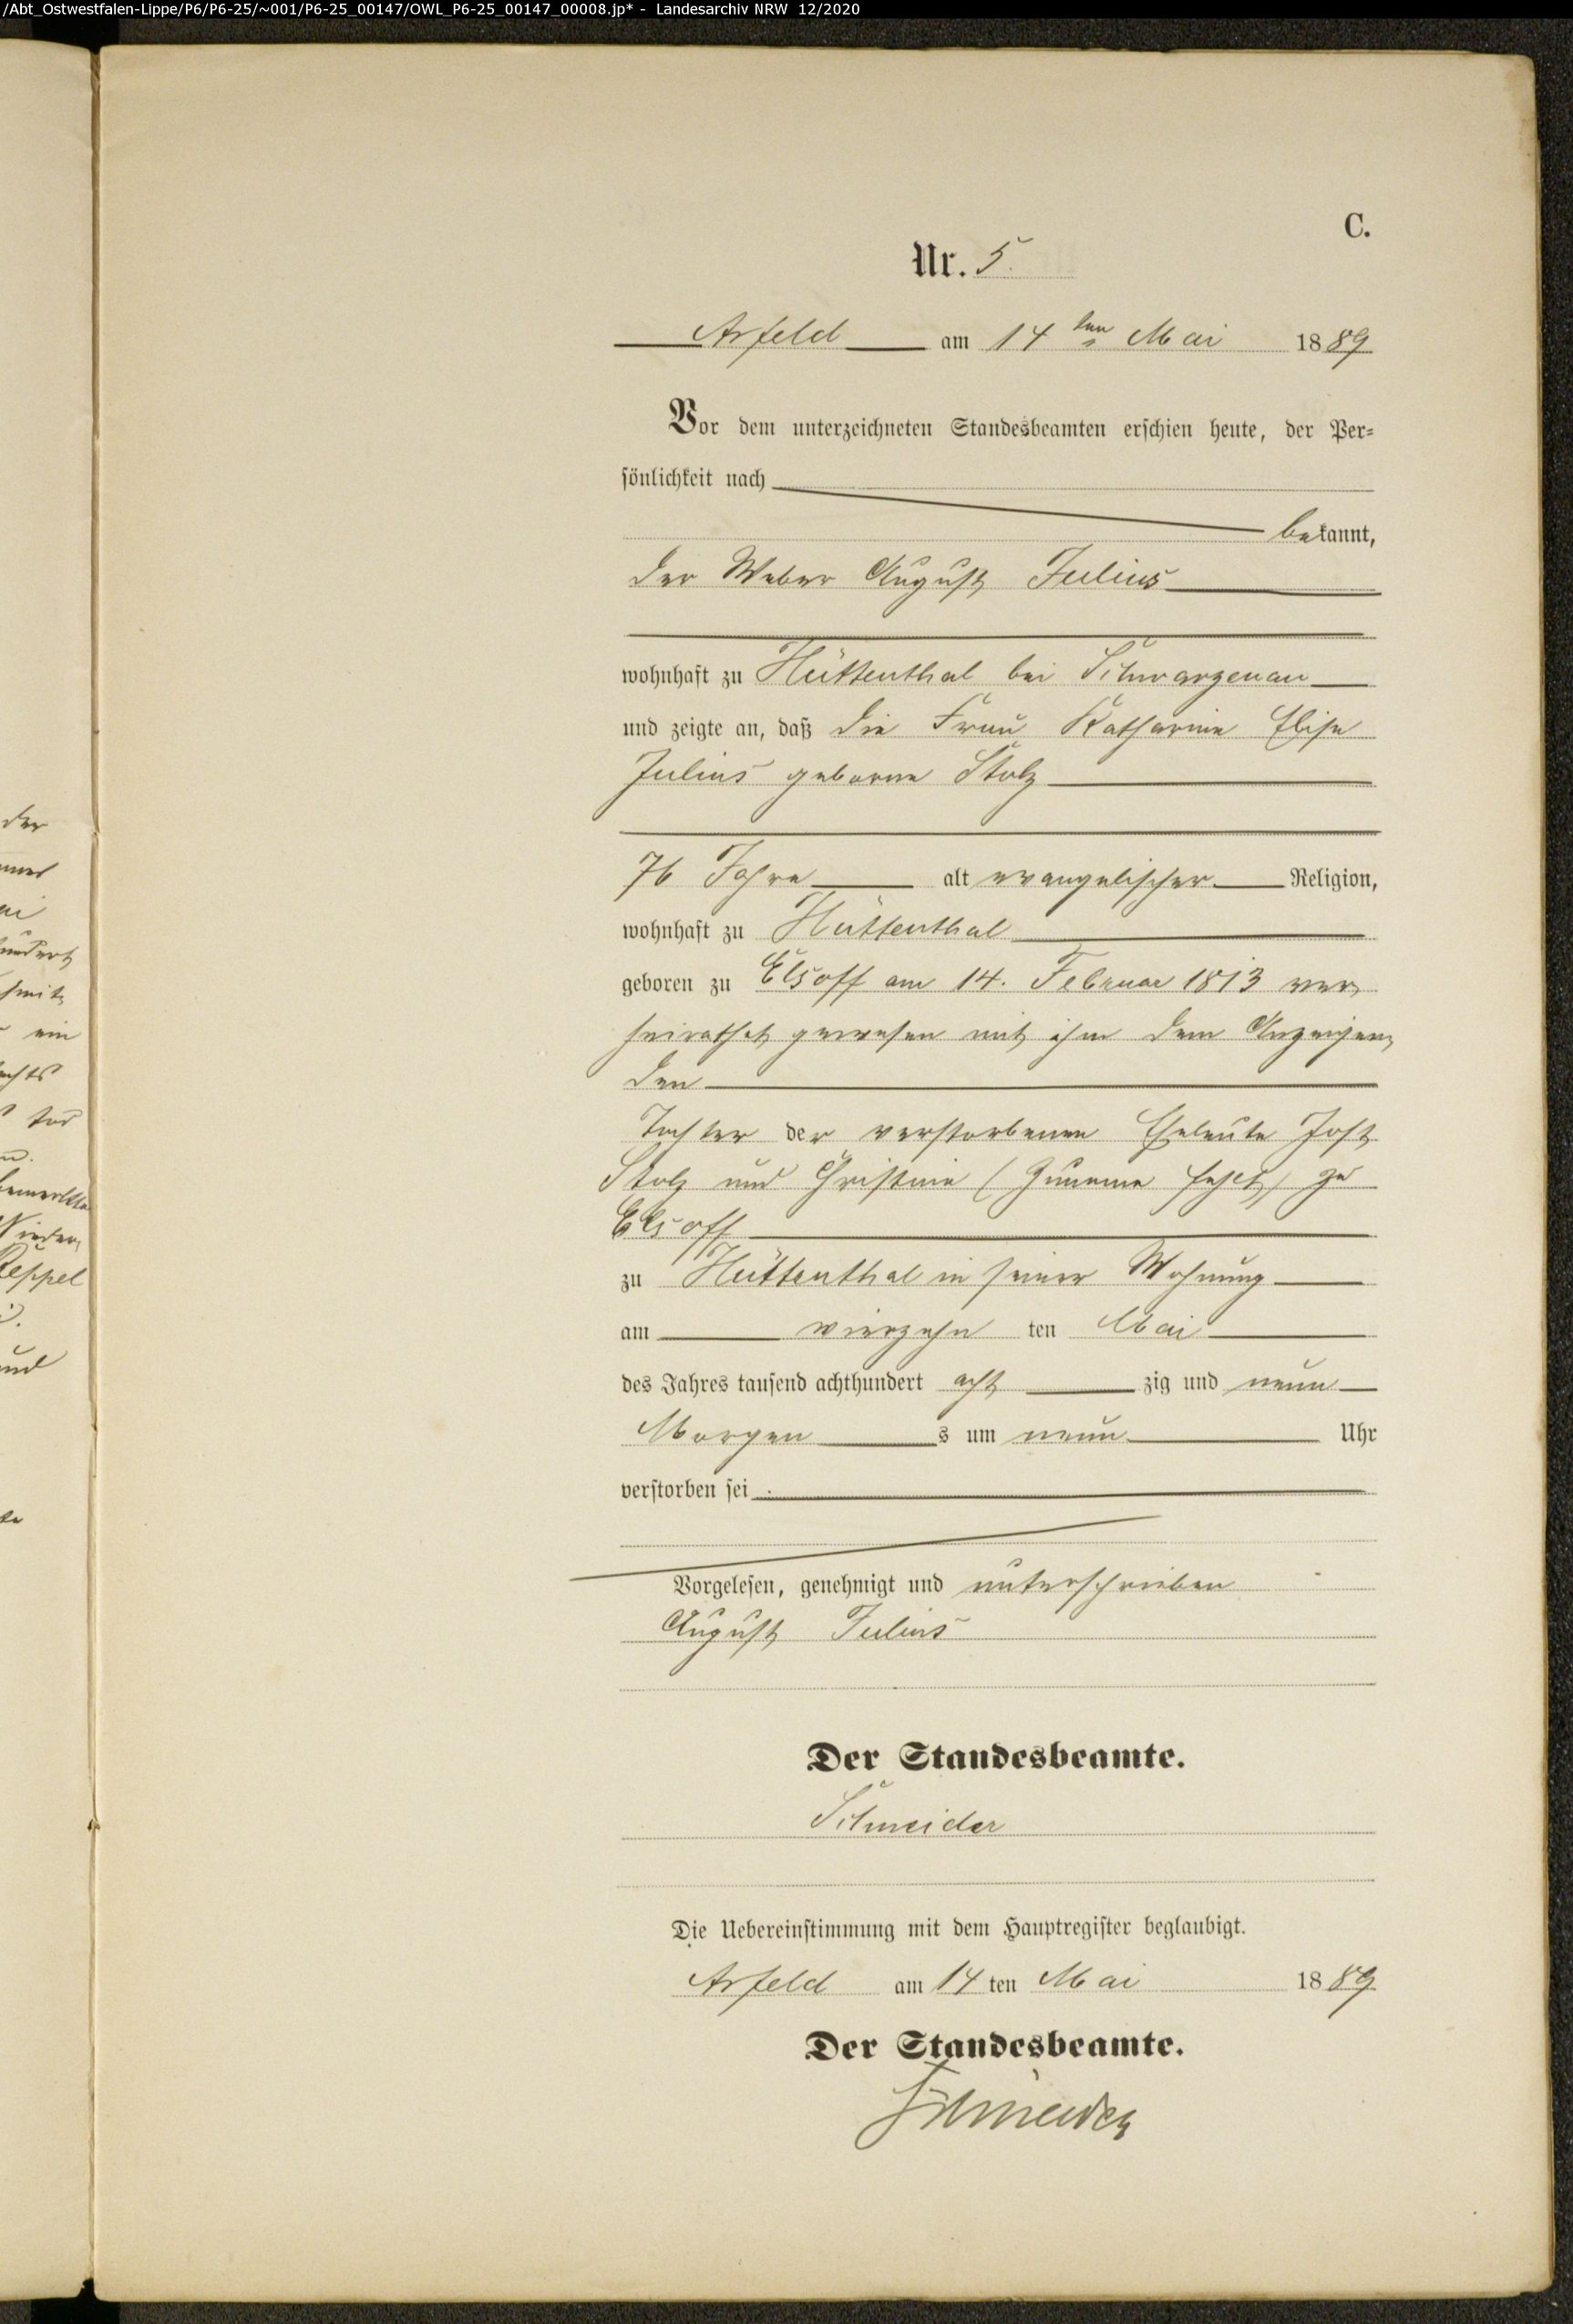 /Abt_Ostwestfalen-Lippe/P6/P6-25/~001/P6-25_00147/OWL_P6-25_00147_00008.jp* - Landesarchiv NRW 12/2020
C.
Nr. 5.
Arfeld am 14ten Mai 1889
Vor dem unterzeichneten Standesbeamten erschien heute, der Per-
sönlichkeit nach
bekannt,
der Weber August Julius
wohnhaft zu Hüttenthal bei Schwarzenau
und zeigte an, daß die Frau Katharine Elise
Julius geborne Stolz
76 Jahre alt evangelischer Religion,
wohnhaft zu Hüttenthal
geboren zu Elsoff am 14. Februar 1813 ver-
heirathet gewesen mit ihm dem Anzeigen-
den
Tochter der verstorbenen Eheleute Jost
Stolz und Christine (Zuname fehlt) zu
Elsoff
zu Hüttenthal in seiner Wohnung
am vierzehn ten Mai
des Jahres tausend achthundert acht zig und neun
Morgen s um neun Uhr
verstorben sei.
Vorgelesen, genehmigt und unterschrieben
August Julius
Der Standesbeamte.
Schneider
Die Uebereinstimmung mit dem Hauptregister beglaubigt.
Arfeld am 14 ten Mai 1889
Der Standesbeamte.
Schneider
der
ein
Keppel
und